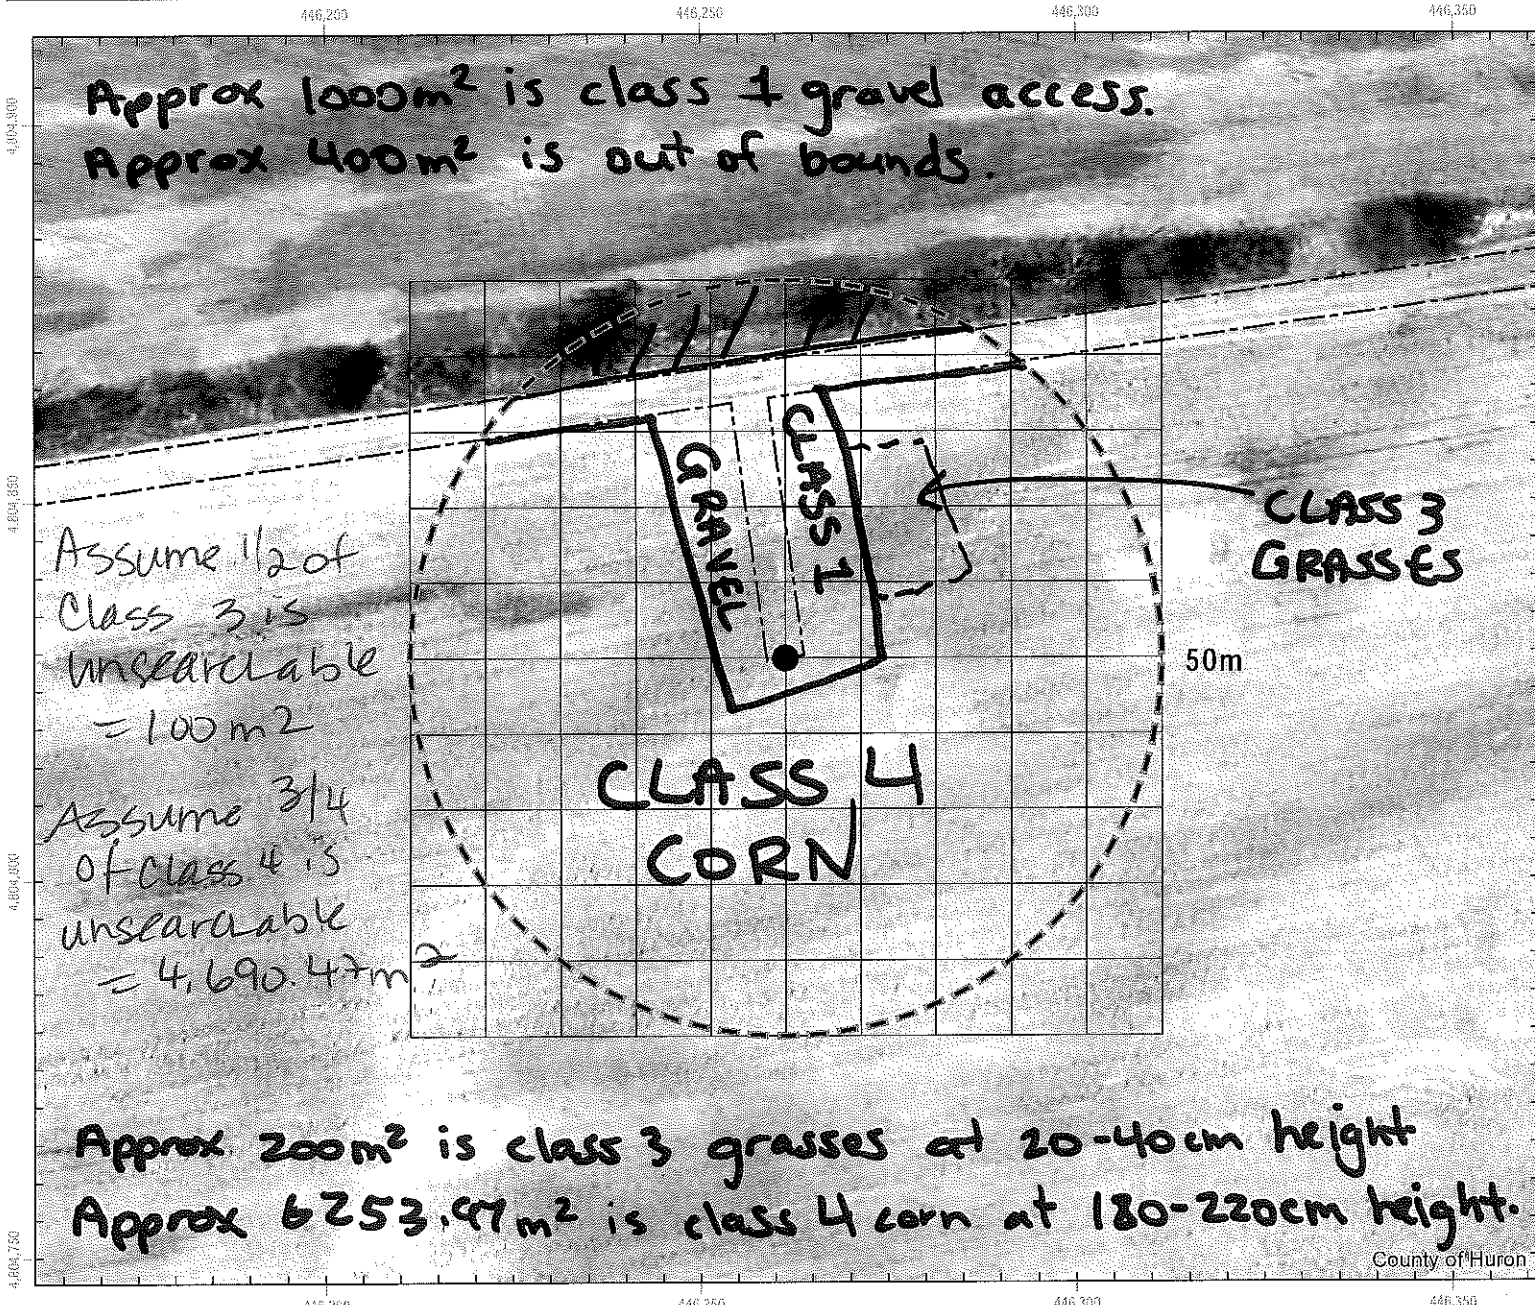 446,200 446,250 446,300 446,350
4,804,900
Approx 1000m² is class 1 gravel access.
Approx 400m² is out of bounds.
GRAVEL
CLASS 1
4,804,850
CLASS 3
GRASSES
Assume 1/2 of
Class 3 is
unsearchable
= 100 m2
50m
CLASS 4
CORN
Assume 3/4
of class 4 is
unsearchable
= 4,690.47m2
4,804,800
Approx 200m² is class 3 grasses at 20-40cm height
Approx 6253.97m² is class 4 corn at 180-220cm height.
4,804,750
County of Huron
446,200 446,250 446,300 446,350